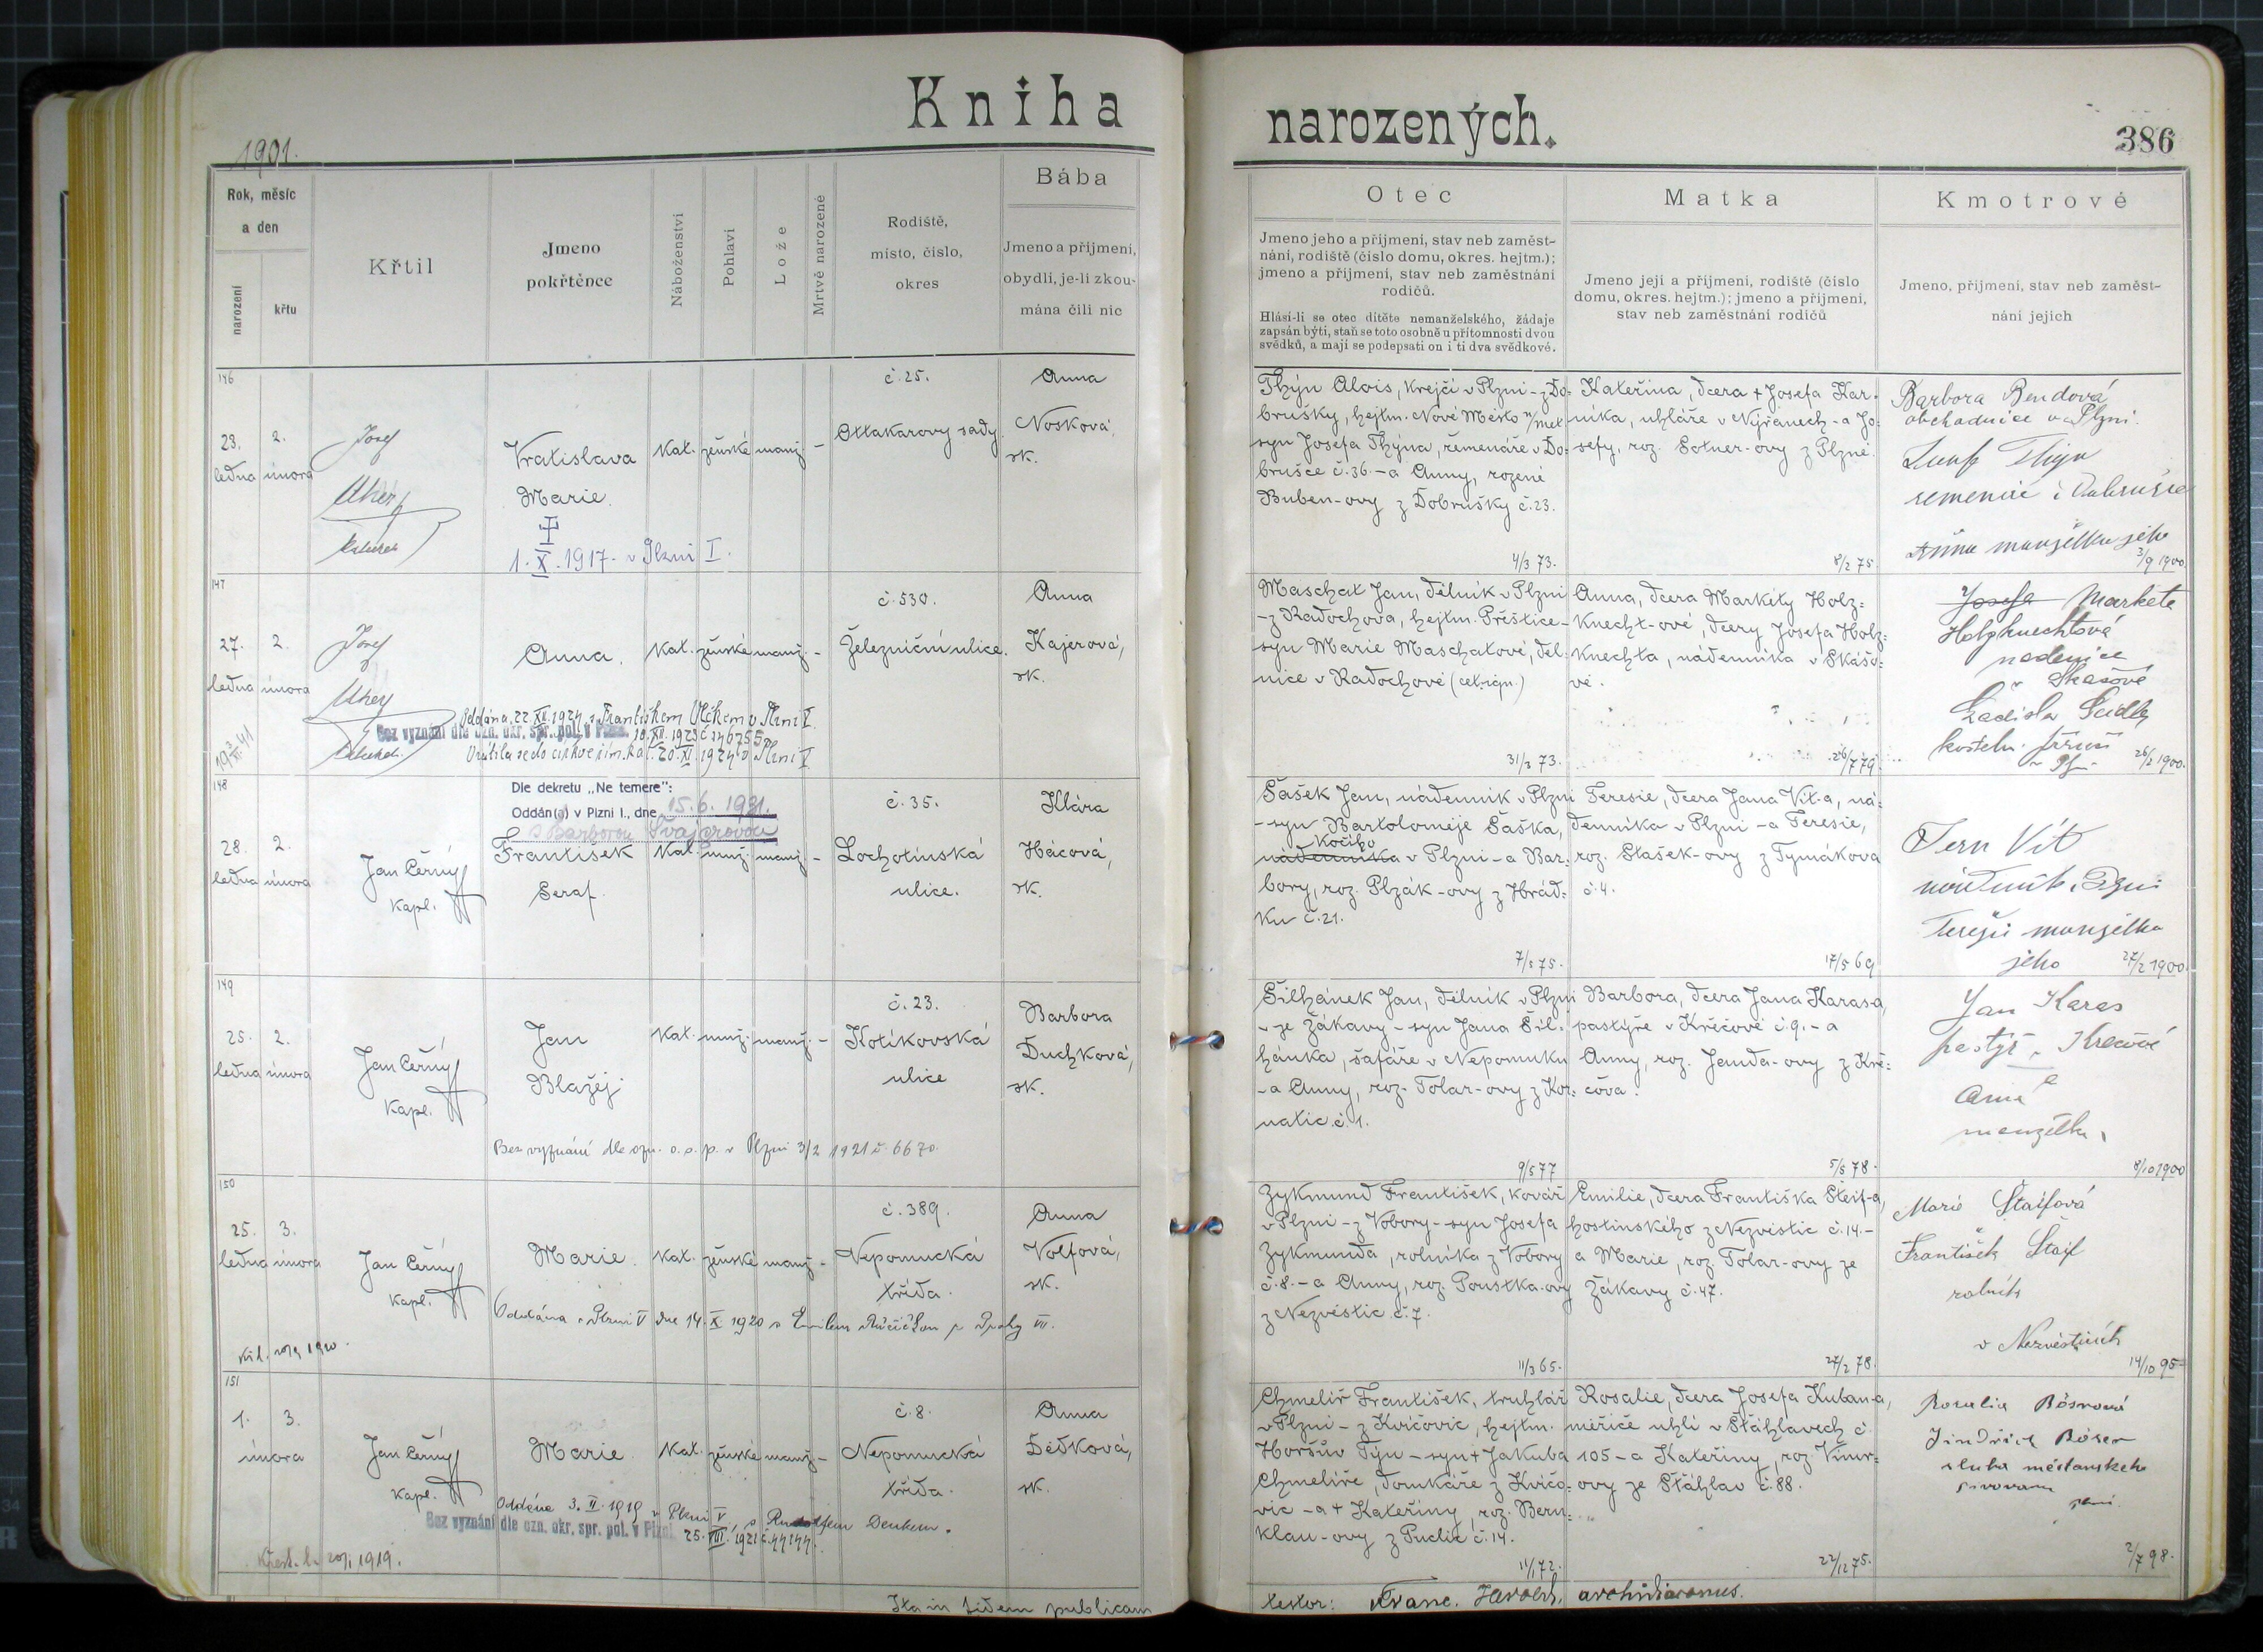 Kniha narozených.
1901.
386
Rok, měsíc
a den
narození
křtu
Křtil
Jmeno
pokřtěnce
Náboženství
Pohlaví
Lože
Mrtvě narozené
Rodiště,
místo, číslo,
okres
Bába
Jmeno a přijmení,
obydlí, je-li zkou-
mána čili nic
Otec
Jmeno jeho a příjmení, stav neb zaměst-
nání, rodiště (číslo domu, okres. hejtm.);
jmeno a příjmení, stav neb zaměstnání
rodičů.
Hlásí-li se otec dítěte nemanželského, žádaje
zapsán býti, staň se toto osobně u přítomnosti dvou
svědků, a mají se podepsati on i ti dva svědkové.
Matka
Jmeno její a příjmení, rodiště (číslo
domu, okres. hejtm.); jmeno a příjmení,
stav neb zaměstnání rodičů
Kmotrové
Jmeno, příjmení, stav neb zaměst-
nání jejich
146
23.
ledna
2.
února
Josef
Uher
Vratislava
Marie.
1. X. 1917. v Plzni I.
kat. ženské manž. -
č. 25.
Ottakarovy sady.
Anna
Nosková,
zk.
Thýn Alois, krejčí v Plzni - z Do-
brušky, hejtm. Nové Město n/Met.
syn Josefa Thýna, řemenáře v Do-
brušce č. 36. - a Anny, rozené
Buben-ovy z Dobrušky č. 23.
4/3 73.
Kateřina, dcera + Josefa Kar-
níka, uhláře v Nýřanech - a Jo-
sefy, roz. Sotner-ovy z Plzně.
8/2 75
Barbora Bendová
obchodnice v Plzni.
Thýn
Anna manželka jeho
3/9 1900.
147
27.
ledna
2.
února
Josef
Uher
Anna.
kat. ženské manž. -
č. 530.
Železniční ulice.
Anna
Kajerová,
zk.
Oddána 22. XII. 1924 s Františkem Vlčkem v Plzni V.
Bez vyznání dle ozn. okr. spr. pol. v Plzni. 10. XII. 1923 č. 146755
Vrátila se do církve řím. kat. 20. XI. 1924 v Plzni V.
Maschat Jan, dělník v Plzni
- z Radochova, hejtm. Přeštice -
syn Marie Maschatové, děl-
nice v Radochově
31/3 73.
Anna, dcera Markéty Holz-
knecht-ové, dcery Josefa Holz-
knechta, nádenníka v Skašo-
vě.
26/7 79.
Josefa Markéta
Holzknechtová
nadenice
v Skašově
Ladisla Seidl
v Plzni
26/2 1900.
148
Dle dekretu „Ne temere":
Oddán(a) v Plzni I., dne 15. 6. 1931.
s Barborou Švajcrovou
28.
ledna
2.
února
Jan Černý
kapl.
František
Seraf.
kat. muž. manž. -
č. 35.
Lochotínská
ulice.
Klára
Hácová,
zk.
Šašek Jan, nádenník v Plzni
- syn Bartoloměje Šaška,
kočího
nádenníka v Plzni - a Bar-
bory, roz. Plzák-ovy z Hrád-
ku č. 21.
7/5 75.
Teresie, dcera Jana Vít-a, ná-
denníka v Plzni - a Teresie,
roz. Stašek-ovy z Tymákova
č. 4.
17/5 69
Vít
manželka
jeho
27/2 1900.
149
25.
ledna
2.
února
Jan Černý
kapl.
Jan
Blažej.
kat. muž. manž. -
č. 23.
Kotíkovská
ulice
Barbora
Duchková,
zk.
Bez vyznání dle ozn. o. s. p. v Plzni 3/2 1921 č. 6670.
Šilhánek Jan, dělník v Plzni
- ze Žákavy - syn Jana Šil-
hánka, šafáře v Nepomuku
- a Anny, roz. Tolar-ovy z Kor-
natic č. 1.
9/5 77
Barbora, dcera Jana Karas-a,
pastýře v Křečově č. 9. - a
Anny, roz. Janda-ovy z Kře-
čova.
5/5 78.
Jan Karas
pastýř v Křečově
a
Anna
manželka.
8/10 1900
150
25.
ledna
3.
února
Jan Černý
kapl.
Marie.
kat. ženské manž. -
č. 389.
Nepomucká
třída.
Anna
Volfová,
zk.
Oddána v Plzni V dne 14. X. 1920 s Emilem Růžičkou z Prahy VII.
Zykmund František, kovář
v Plzni - z Vobory - syn Josefa
Zykmunda, rolníka z Vobory
č. 8. - a Anny, roz. Poustka-ovy
z Nezvěstic č. 7.
11/3 65.
Emilie, dcera Františka Šteif-a,
hostinského z Nezvěstic č. 14. -
a Marie, roz. Tolar-ovy ze
Žákavy č. 47.
27/2 78.
Marie Štaifová
František Štaif
rolník
v Nezvěsticích
14/10 95
151
1.
února
3.
Jan Černý
kapl.
Marie.
kat. ženské manž. -
č. 8.
Nepomucká
třída.
Anna
Dědková,
zk.
Oddána 3. II. 1919 v Plzni V. s Rudolfem Denkem.
Bez vyznání dle ozn. okr. spr. pol. v Plzni 25. VIII. 1921 č. 44144.
Křest. l. 20/1 1919.
Chmelíř František, truhlář
v Plzni - z Kvíčovic, hejtm.
Horšův Týn - syn + Jakuba
Chmelíře, domkáře z Kvíčo-
vic - a + Kateřiny, roz. Bern-
klau-ovy z Puclic č. 14.
11/1 72.
Rosalie, dcera Josefa Kuban-a,
měřiče uhlí v Šťáhlavech č.
105 - a Kateřiny, roz. Vinur-
ovy ze Šťáhlav č. 88.
22/12 75.
Rosalia Bösrová
Jindřich Böser
sluha měšťanského
pivovaru
2/7 98.
Ita in fidem publicam
testor: Franc. Herold, archidiaconus.